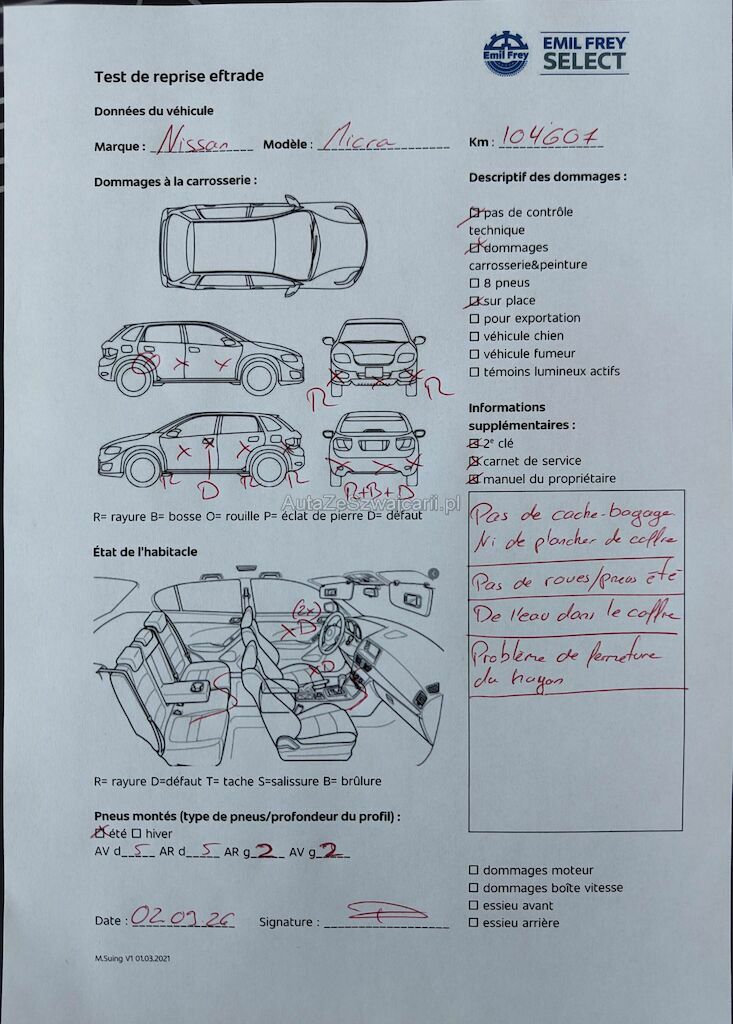 Emil Frey
EMIL FREY
SELECT
Test de reprise eftrade
Données du véhicule
Marque : Nissan Modèle : Micra Km : 104607
Dommages à la carrosserie :
Descriptif des dommages :
pas de contrôle
technique
dommages
carrosserie&peinture
8 pneus
sur place
pour exportation
véhicule chien
véhicule fumeur
témoins lumineux actifs
R R
R R R
D
R+B+D
R= rayure B= bosse O= rouille P= éclat de pierre D= défaut
AutaZeSzwajcarii.pl
Informations
supplémentaires :
2e clé
carnet de service
manuel du propriétaire
Pas de cache-bagage
Ni de plancher de coffre
Pas de roues/pneus été
De l'eau dans le coffre
Problème de fermeture
du hayon
État de l'habitacle
(2x)
XD
XD
R= rayure D=défaut T= tache S=salissure B= brûlure
Pneus montés (type de pneus/profondeur du profil) :
été hiver
AV d 5 AR d 5 AR g 2 AV g 2
dommages moteur
dommages boîte vitesse
essieu avant
essieu arrière
Date : 02.09.26 Signature :
M.Suing V1 01.03.2021